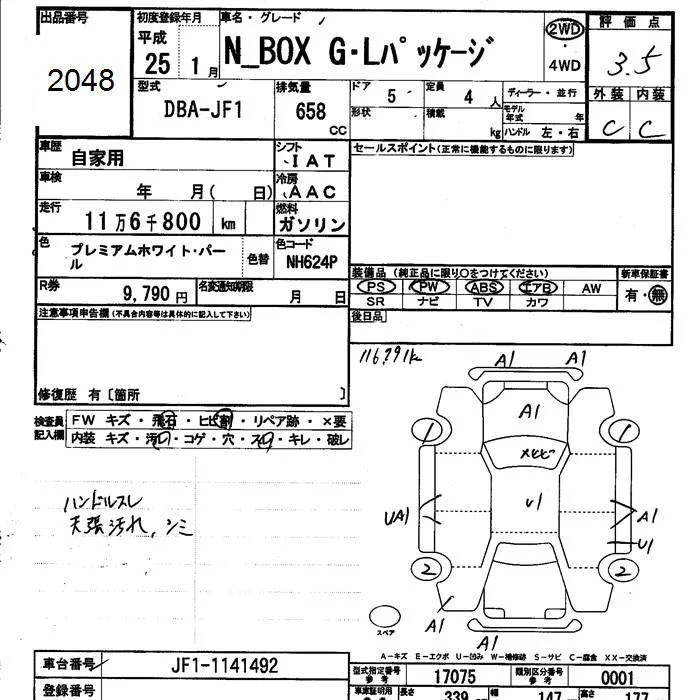 出品番号 初度登録年月 車名・グレード 評価点
2048 平成 25 1月 N_BOX G・Lパッケージ 2WD・4WD 3.5
型式 排気量 ドア 5 定員 4人 ディーラー・並行 外装 内装
DBA-JF1 658 cc 形状 積載 kg モデル年式 年 ハンドル 左・右 C C
車歴 自家用 シフト IAT セールスポイント(正常に機能するものに限ります)
車検 年 月( 日) 冷房 AAC
走行 11万6千800 km 燃料 ガソリン
色 プレミアムホワイト・パール 色替 色コード NH624P
装備品 (純正品に限り○をつけてください) 新車保証書
R券 9,790円 名変通知期限 月 日
PS PW ABS エアB AW 有・無
SR ナビ TV カワ
注意事項申告欄(不具合内容等は具体的に記入して下さい) 後日品
116791k
A1 A1
A1
修復歴 有〔箇所 〕
検査員記入欄 FW キズ・飛石・ヒビ割・リペア跡・×要
内装 キズ・汚れ・コゲ・穴・スレ・キレ・破レ
1 1
×ヒビ
ハンドルスレ
天張汚れ、シミ
UA1 U1 A1
U1
2 2
スペア A1
A1
A-キズ E-エクボ U-凹み W-補修跡 S-サビ C-腐食 XX-交換済
車台番号 JF1-1141492 型式指定番号 参考 17075 類別区分番号 参考 0001
登録番号 車車証明用 参考 長さ 339 幅 147 高さ 177